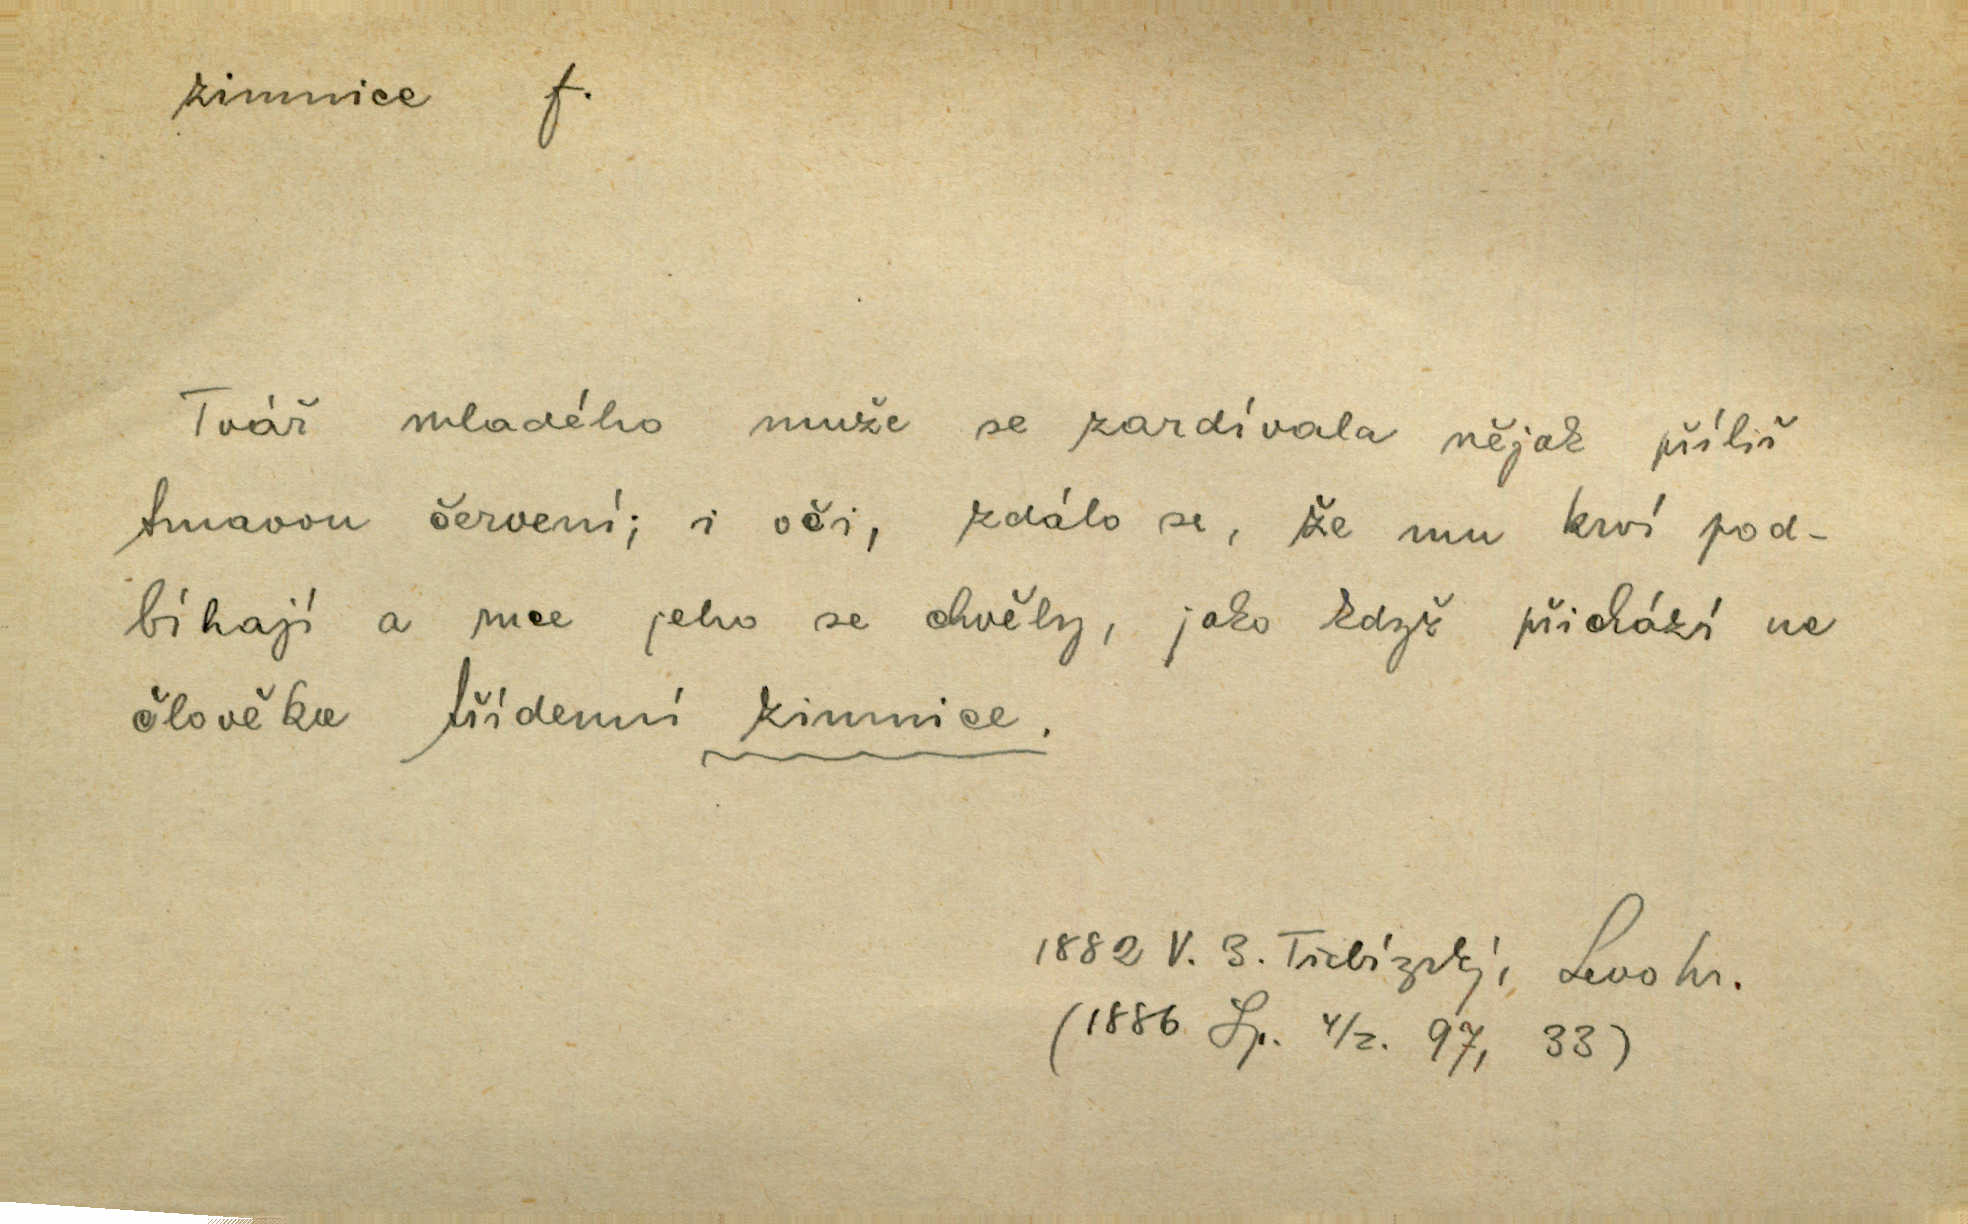 zimnice f.
Tvář mladého muže se zardívala nějak příliš
tmavou červení; i oči, zdálo se, že mu krví pod-
bíhají a ruce jeho se chvěly, jako když přichází na
člověka třídenní zimnice.
1882 V. B. Třebízský, Levohr.
(1886 Sp. 4/2. 97, 33)